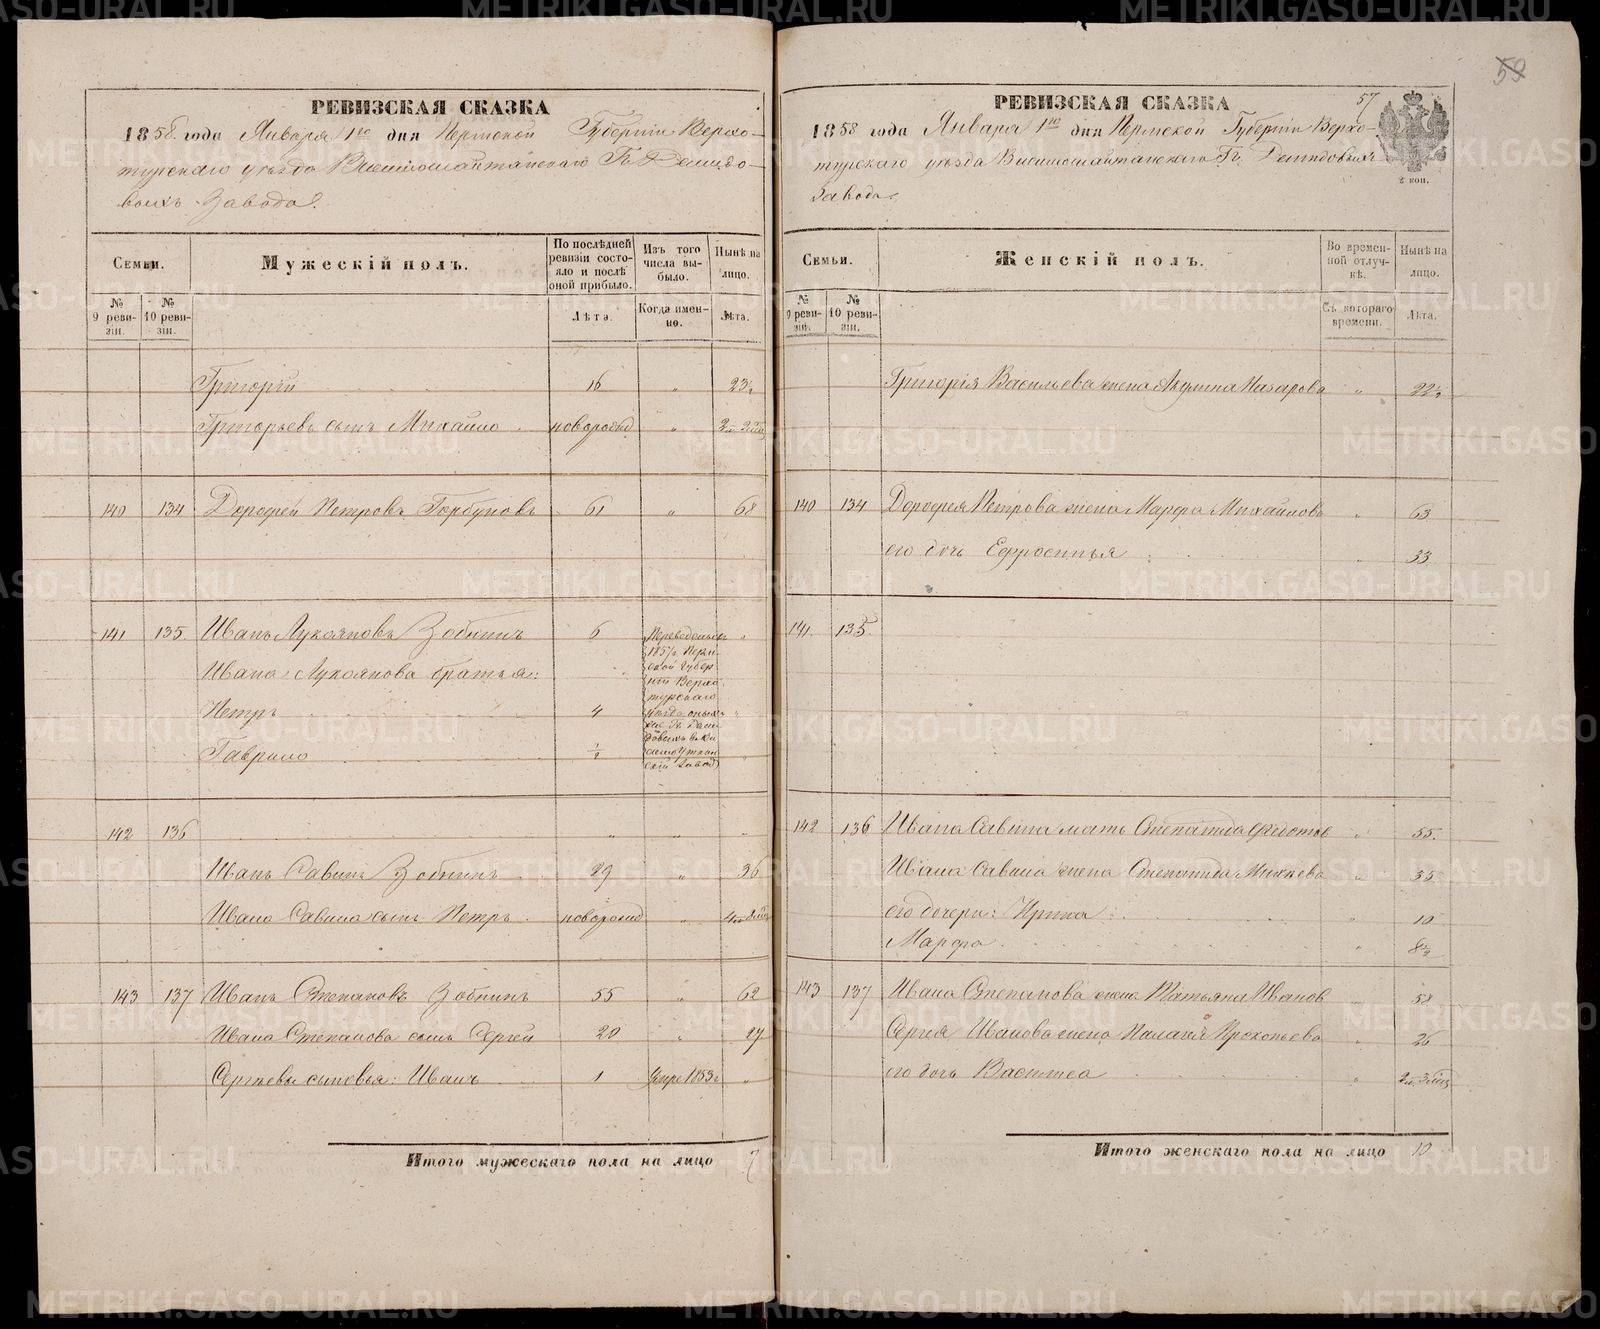 59
РЕВИЗСКАЯ СКАЗКА
1858 года Января 1го дня Пермской Губерніи Верхо-
турскаго уѣзда Висимошайтанскаго Гг. Демидо-
выхъ Завода.
Семьи.
Мужескій полъ.
По послѣдней ревизіи состояло и послѣ оной прибыло.
Изъ того числа выбыло.
Нынѣ на лицо.
№ 9 ревизіи.
№ 10 ревизіи.
Лѣта.
Когда именно.
Лѣта.
Григорій 16 " 23½
Григорьевъ сынъ Михайло новорожд " 2
140 134 Дорофей Петровъ Горбуновъ 61 " 68
141 135. Иванъ Лукояновъ Зобнинъ 6 "
Ивана Лукоянова братья:
Петръ 4 "
Гаврило ½ "
Переведены въ
185 Перм-
ской Губер
ніи Верхо
турскаго
уѣзда
Гг. Деми
довыхъ въ Ви
симоуткин
скій Завод
142 136 " " "
Иванъ Савинъ Зобнинъ 29 " 36
Ивана Савина сынъ Петръ новорожд " 4
143 137 Иванъ Степановъ Зобнинъ 55 " 62
Ивана Степанова сынъ Сергей 20 " 27
Сергѣевы сыновья: Иванъ 1 Умре 1853 г "
Итого мужескаго пола на лицо 7
57
РЕВИЗСКАЯ СКАЗКА
1858 года Января 1го дня Пермской Губерніи Верхо-
турскаго уѣзда Висимошайтанскаго Гг. Демидовыхъ
Завода.
Семьи.
Женскій полъ.
Во временной отлучкѣ.
Нынѣ на лицо.
№ 9 ревизіи.
№ 10 ревизіи.
Съ котораго времени.
Лѣта.
Григорія Васильева жена Акулина Назарова " 22½
140 134 Дорофея Петрова жена Марфа Михайлова " 63
его дочь Ефросинья " 33
141. 135.
142 136 Ивана Савина мать Степанида Федотов " 55.
Ивана Савина жена Степанида " 35
его дочери: Ирина " 10
Марфа " 8½
143 137 Ивана Степанова жена Татьяна Иванов " 58
Сергея Иванова жена Палагея Прокопьева " 26
его дочь Васильева " 2
Итого женскаго пола на лицо 10
METRIKI.GASO-URAL.RU